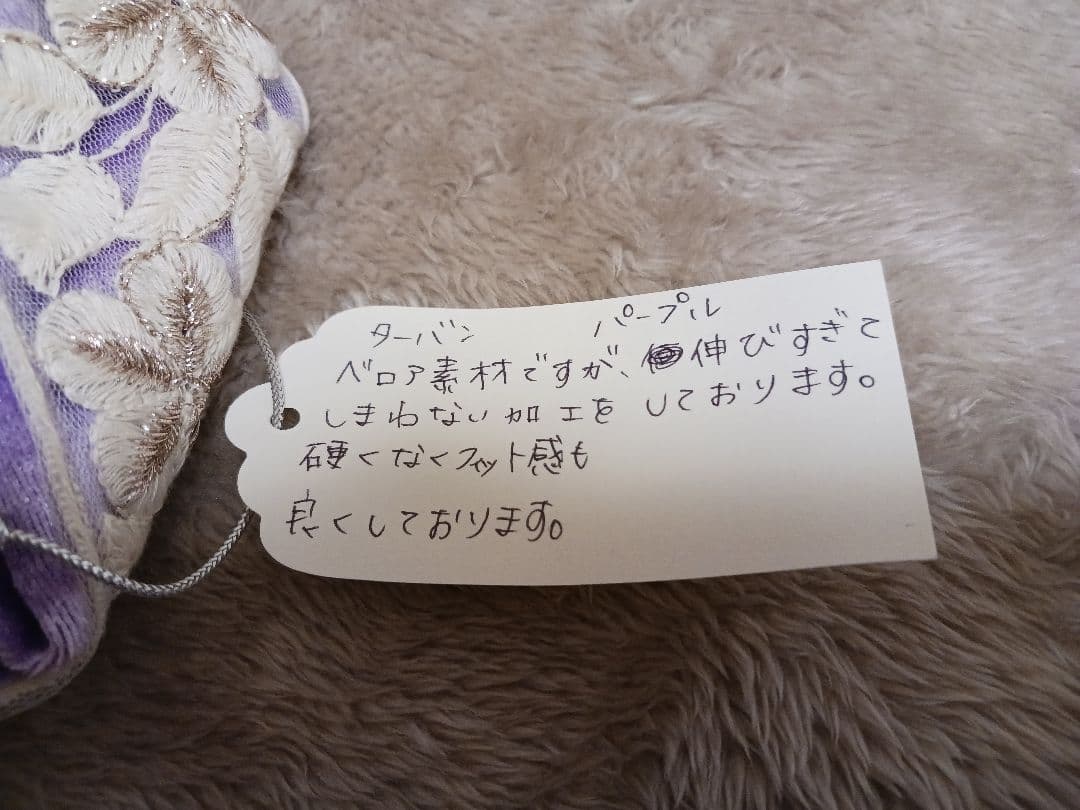 ターバン　パープル
ベロア素材ですが、伸びすぎて
しまわない加工をしております。
硬くなくフィット感も
良くしております。